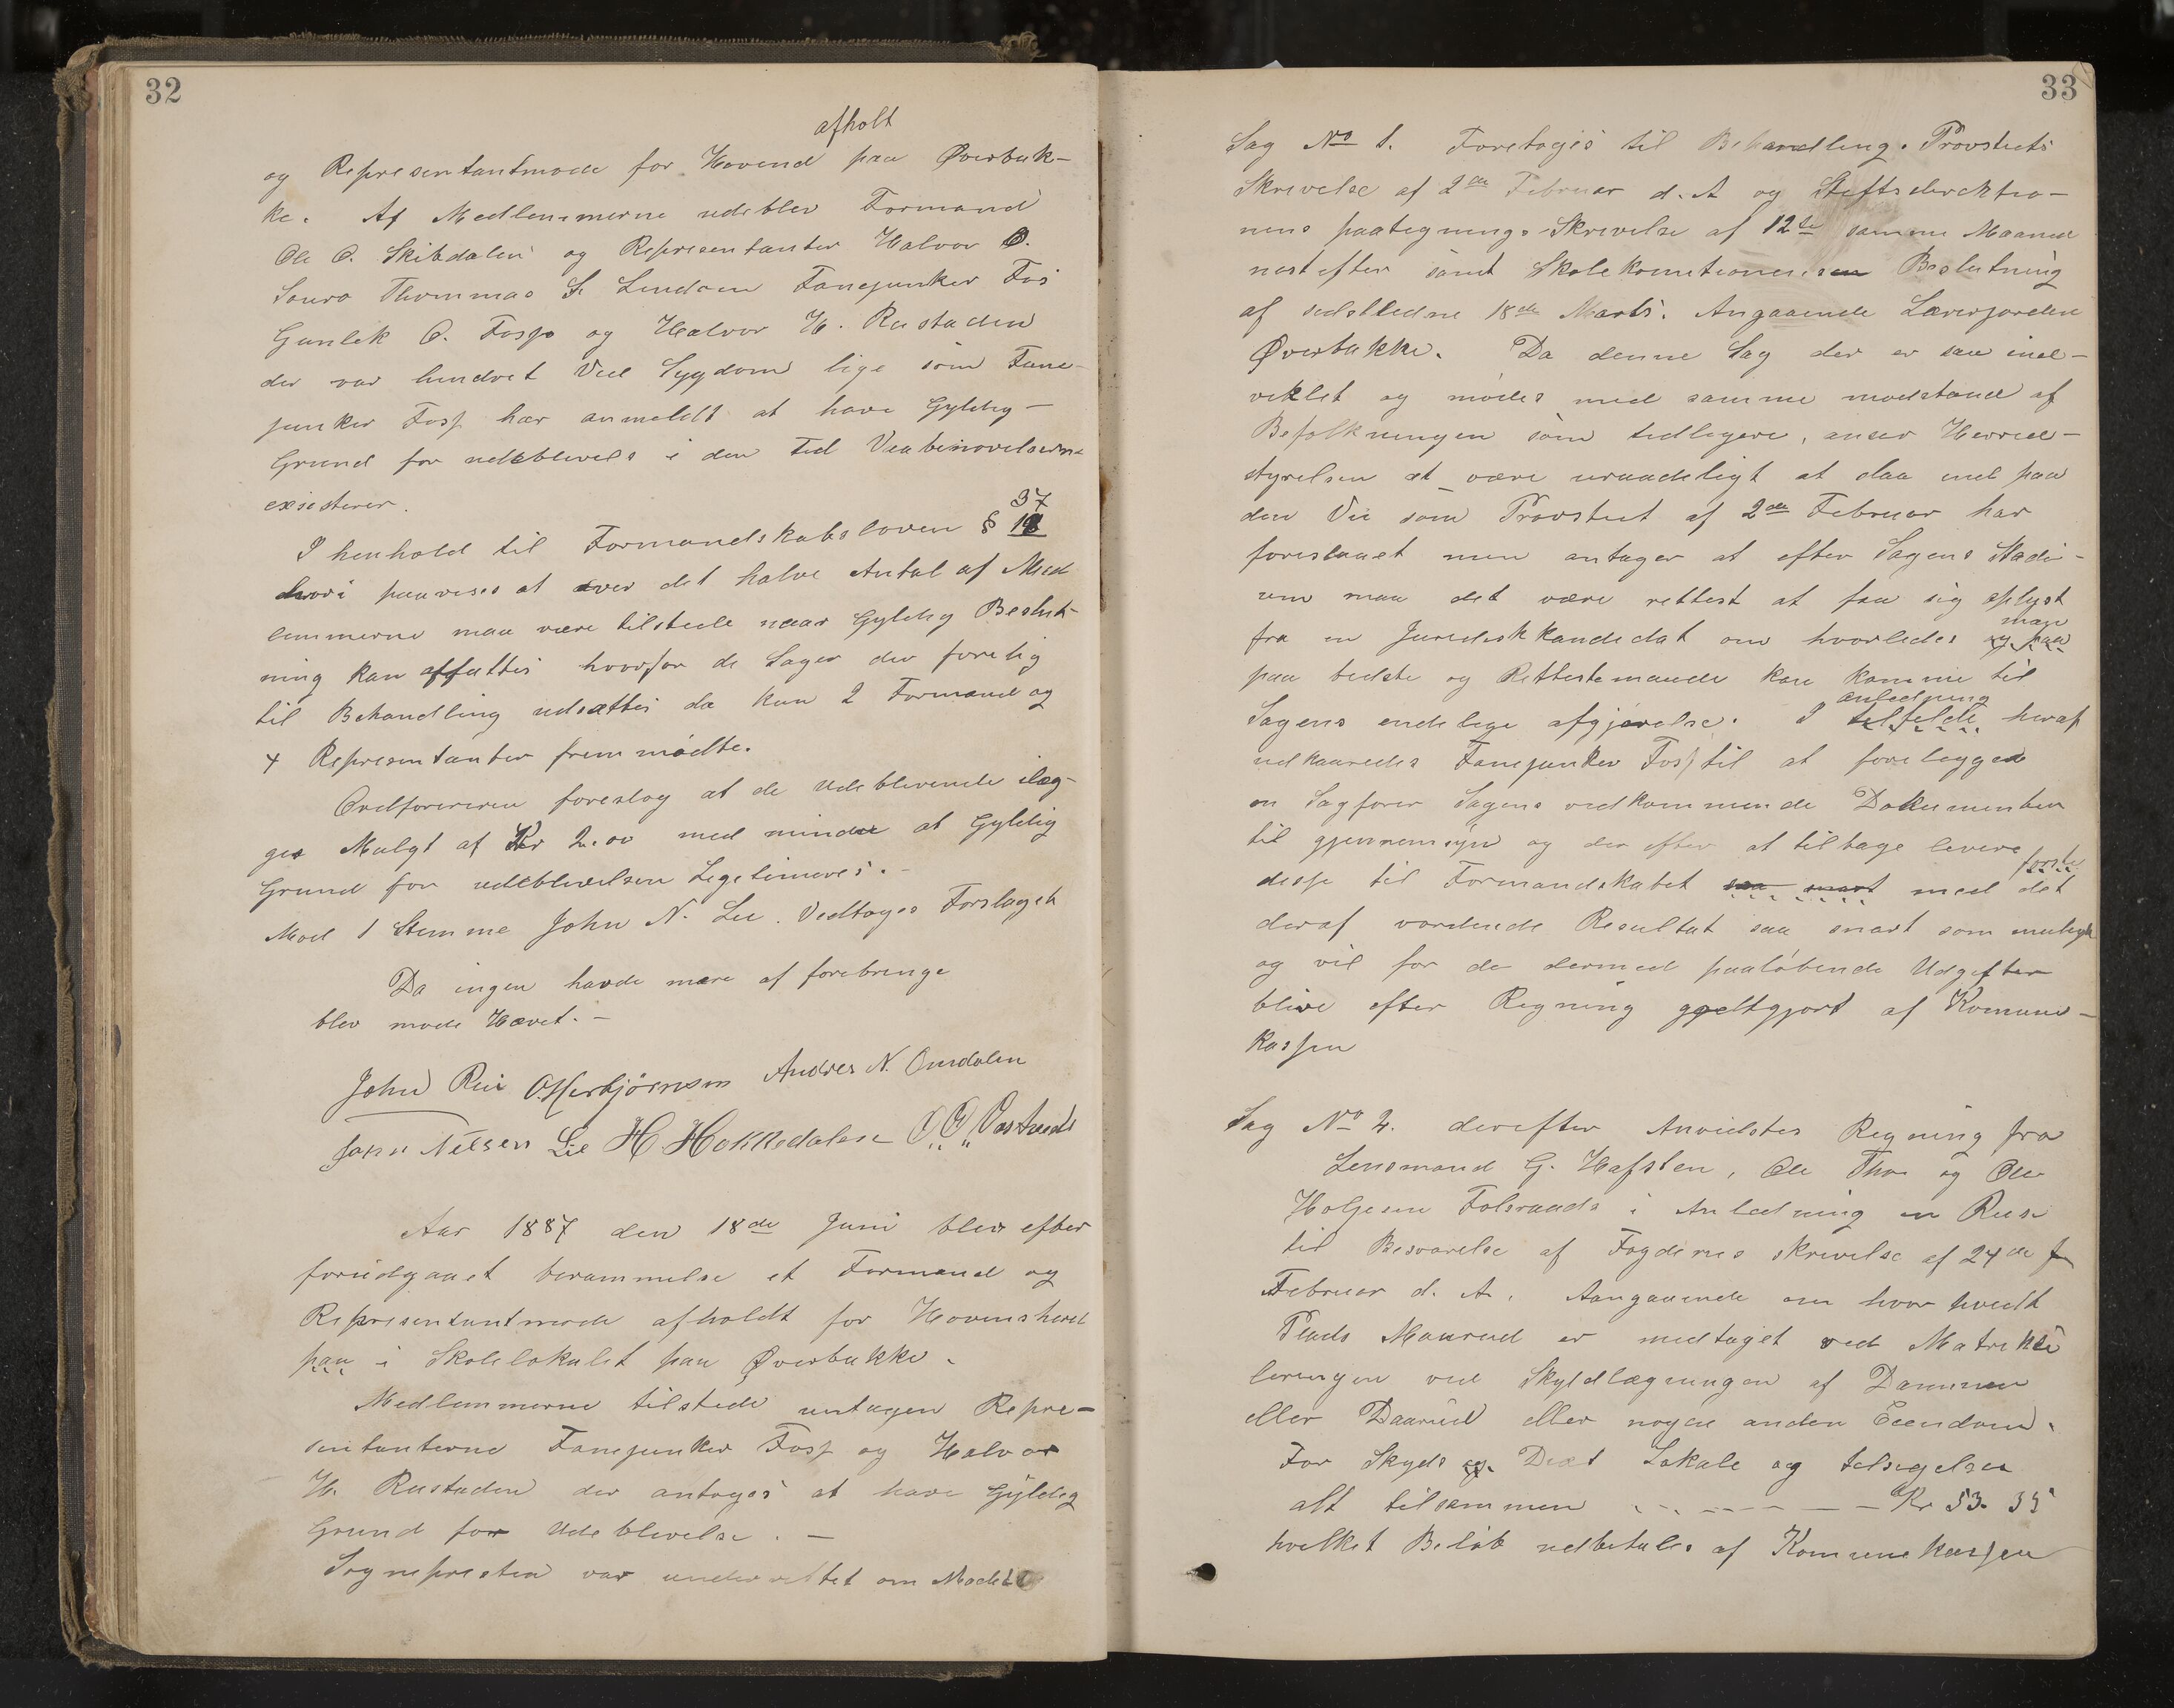 32
afholt
og Representantmøde for Hovend paa Øverbak-
ke. Af Medlemmerne udeblev Formand
Ole O. Skibdalen og Representanter Halvor O.
Thommas S. Lindom Fanejunker Fos
Gunlek O. Fosso og Halvor H. Rustaden
der var hindret Ved Sygdom lige som Fane-
junker Foss har anmeldt at have Gyldig-
Grund for udeblivels i den tid Vaabenøvelserne
exsisterer.
37
I henhold til Formandskabsloven §
hvori paavises at over det halve Antal af Med
lemmerne maa være tilstede naar Gyldig Beslut-
ning kan affattes hvorfor de Sager der forelig
til Behandling udsættes da kun 2 Formænd og
4 Representanter fremmødte.
Ordføreren foreslog at de udeblevende ilæg-
ges Mulgt af Kr 2.00 med mindre at Gyldig
Grund for udeblivelsen Legetimeres.-
Mod 1 Stemme John N. Lie. Vedtoges Forslaget
Da ingen havde mere at forebringe
blev møde Hævet.-
John Rui O. Herbjørnsen Andres N. Omdalen
John Nilsen Lie H Hokksdalen O. O. Vastveit
Aar 1887 den 18de Juni blev efter
forudgaaet berammelse et Formand og
Representantmøde afholdt for Hovinsherred
paa i Skolelokalet paa Øverbakke.
Medlemmerne tilstede untagen Repre-
sentanterne Fanejunker Foss og Halvor
H. Rustaden der antoges at have Gyldig
Grund for Udeblivelse. -
Sognepresten var underrettet om Mødet
33
Sag No 1. Foretoges til Behandling. Provstiets
Skrivelse af 2den Februar d. A og Stiftsdirektio-
nens paategnings-Skrivelse af 12te samme Maaned
nestefter samt Skolekomitionens Beslutning
af sidstledne 18de Marts. Angaaende Lærerjorden
Øverbakke. Da denne Sag der er saa ind-
viklet og mødes med samme modstand af
Befolkningen som tidligere, anser Herred-
styrelsen at være uraadeligt at slaa ind paa
den Vei som Provstiet af 2den Februar har
foreslaaet men antager at efter Sagens Stadi-
um maa det være rettest at faa sig oplyst
man
fra en Juridiskkandidat om hvorledes og paa
paa bedste og Rettestemaade kan komme til
anledning
Sagens endelige afgjørelse. I tilfelde heraf
udkaaredes Fanejunker Foss til at forelegge
en Sagfører Sagens vedkommende Dokumenter
til gjennemsyn og der efter at tilbage levere
første
disse til Formandskabet saa snart med det
deraf vordende Resultat saa snart som muligt
og vil for de dermed paaløbende Udgifter
blive efter Regning godtgjort af Komune-
kassen
Sag No 2. derefter Anvistes Regning fra
Lensmand G. Hafsten, Ole Thor og Ole
Holjesen Folseraads i Anledning en Reise
til Besvarelse af Fogdenes skrivelse af 24de
Februar d. A. Aangaaende om hvor hvidt
Plads Maurud er medtaget ved Matriku
leringen ved Skyldlægningen af Dammen
eller Daarud eller nogen anden Eiendom.
For Skyds og Diæt Lokale og tilsigelser
alt tilsammen - - - - - - - Kr 53. 35
hvilket Beløb udbetales af Komunekassen